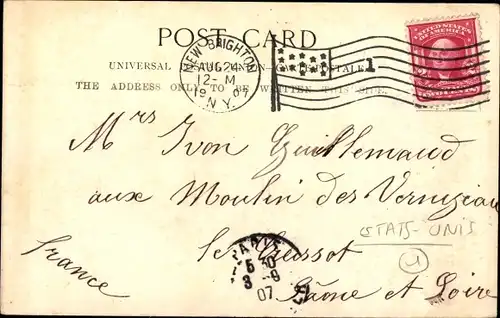 POST CARD
UNIVERSAL POSTAL UNION—CARTE POSTALE
THE ADDRESS ONLY TO BE WRITTEN THIS SIDE.
NEW BRIGHTON
AUG 24
12-M
1907
N.Y.
1
UNITED STATES OF AMERICA
Mrs Ivon Guillemaud
aux Moulin des
le Creusot
Saône et Loire
france
ETATS-UNIS
PARIS
5 30
3 - 9
07